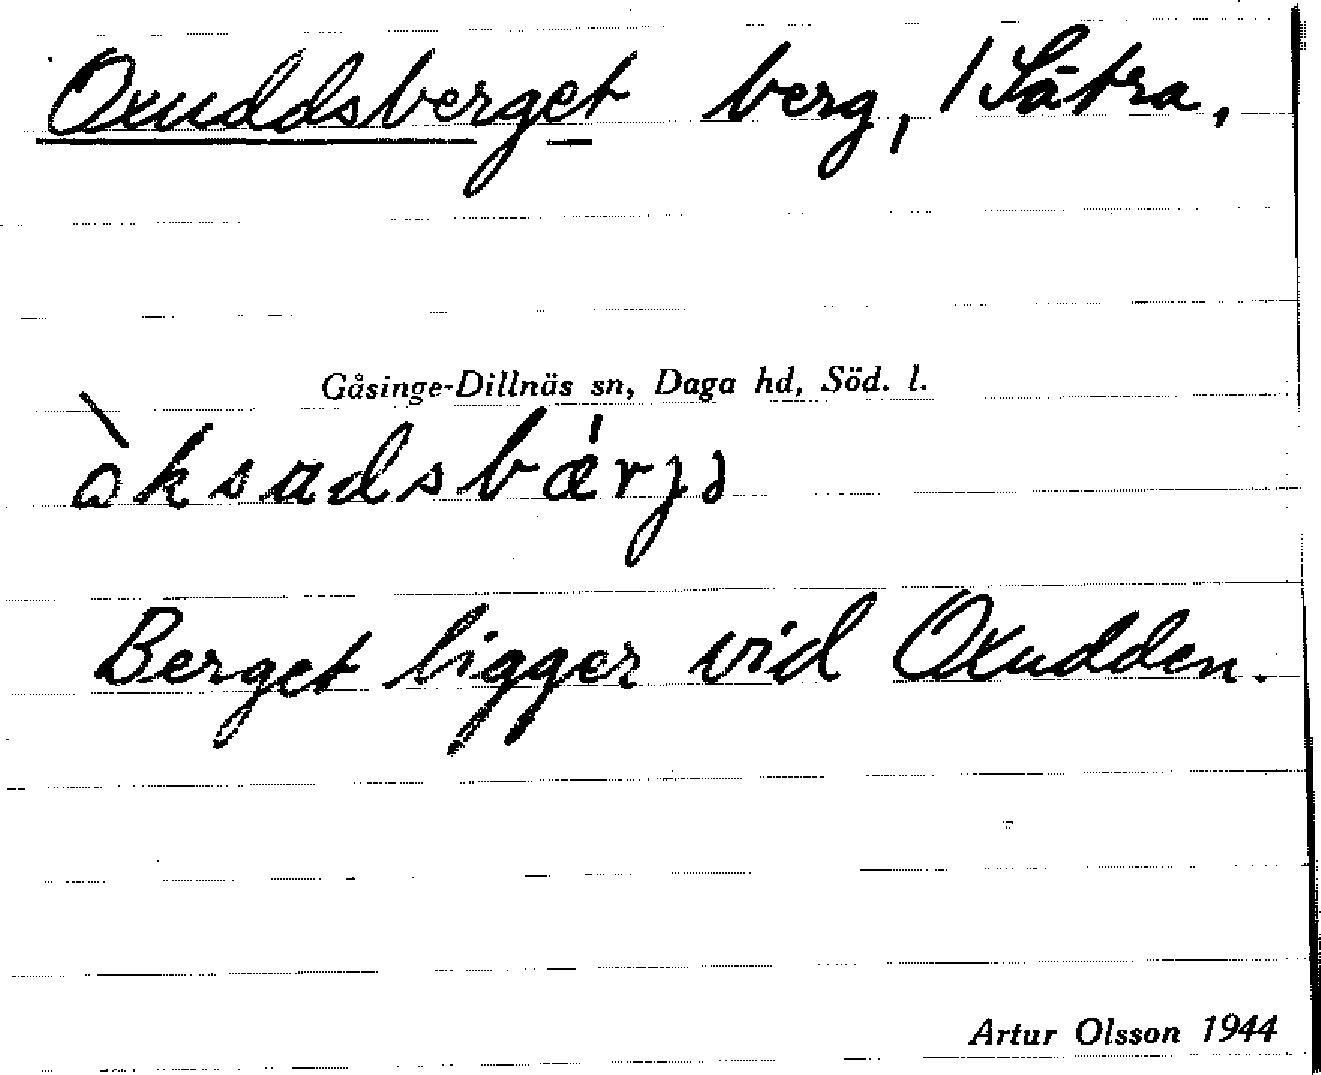 Oxuddsberget berg, 1 Sätra,
Gåsinge-Dillnäs sn, Daga hd, Söd. l.
Berget ligger vid Oxudden.
Artur Olsson 1944